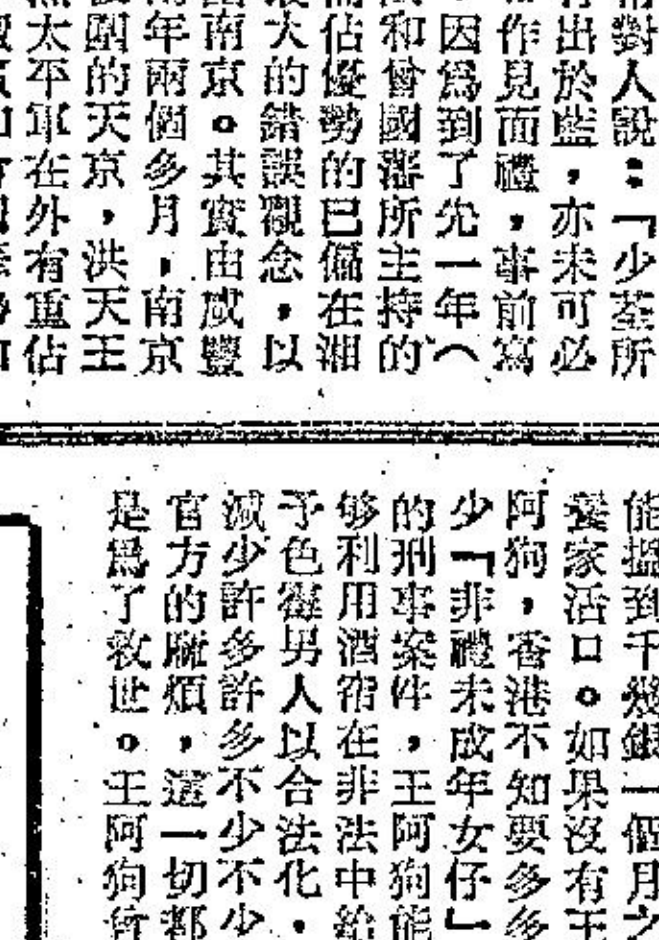 對人說：「少荃所
出於藍，亦未可必
作見面禮，事前寫
，因爲到了先一年（
和曾國藩所主持的
佔優勢的已偏在湘
大的錯誤觀念，以
南京。其實由咸豐
年兩個多月，南京
圍的天京，洪天王
太平軍在外有重佔
能搵到千幾銀一個月之
養家活口。如果沒有王
阿狗，香港不知要多多
少「非禮未成年女仔」
的刑事案件，王阿狗能
够利用酒帘在非法中給
予色男人以合法化，
減少許多許多不少不少
官方的麻煩，這一切都
是爲了救世。王阿狗